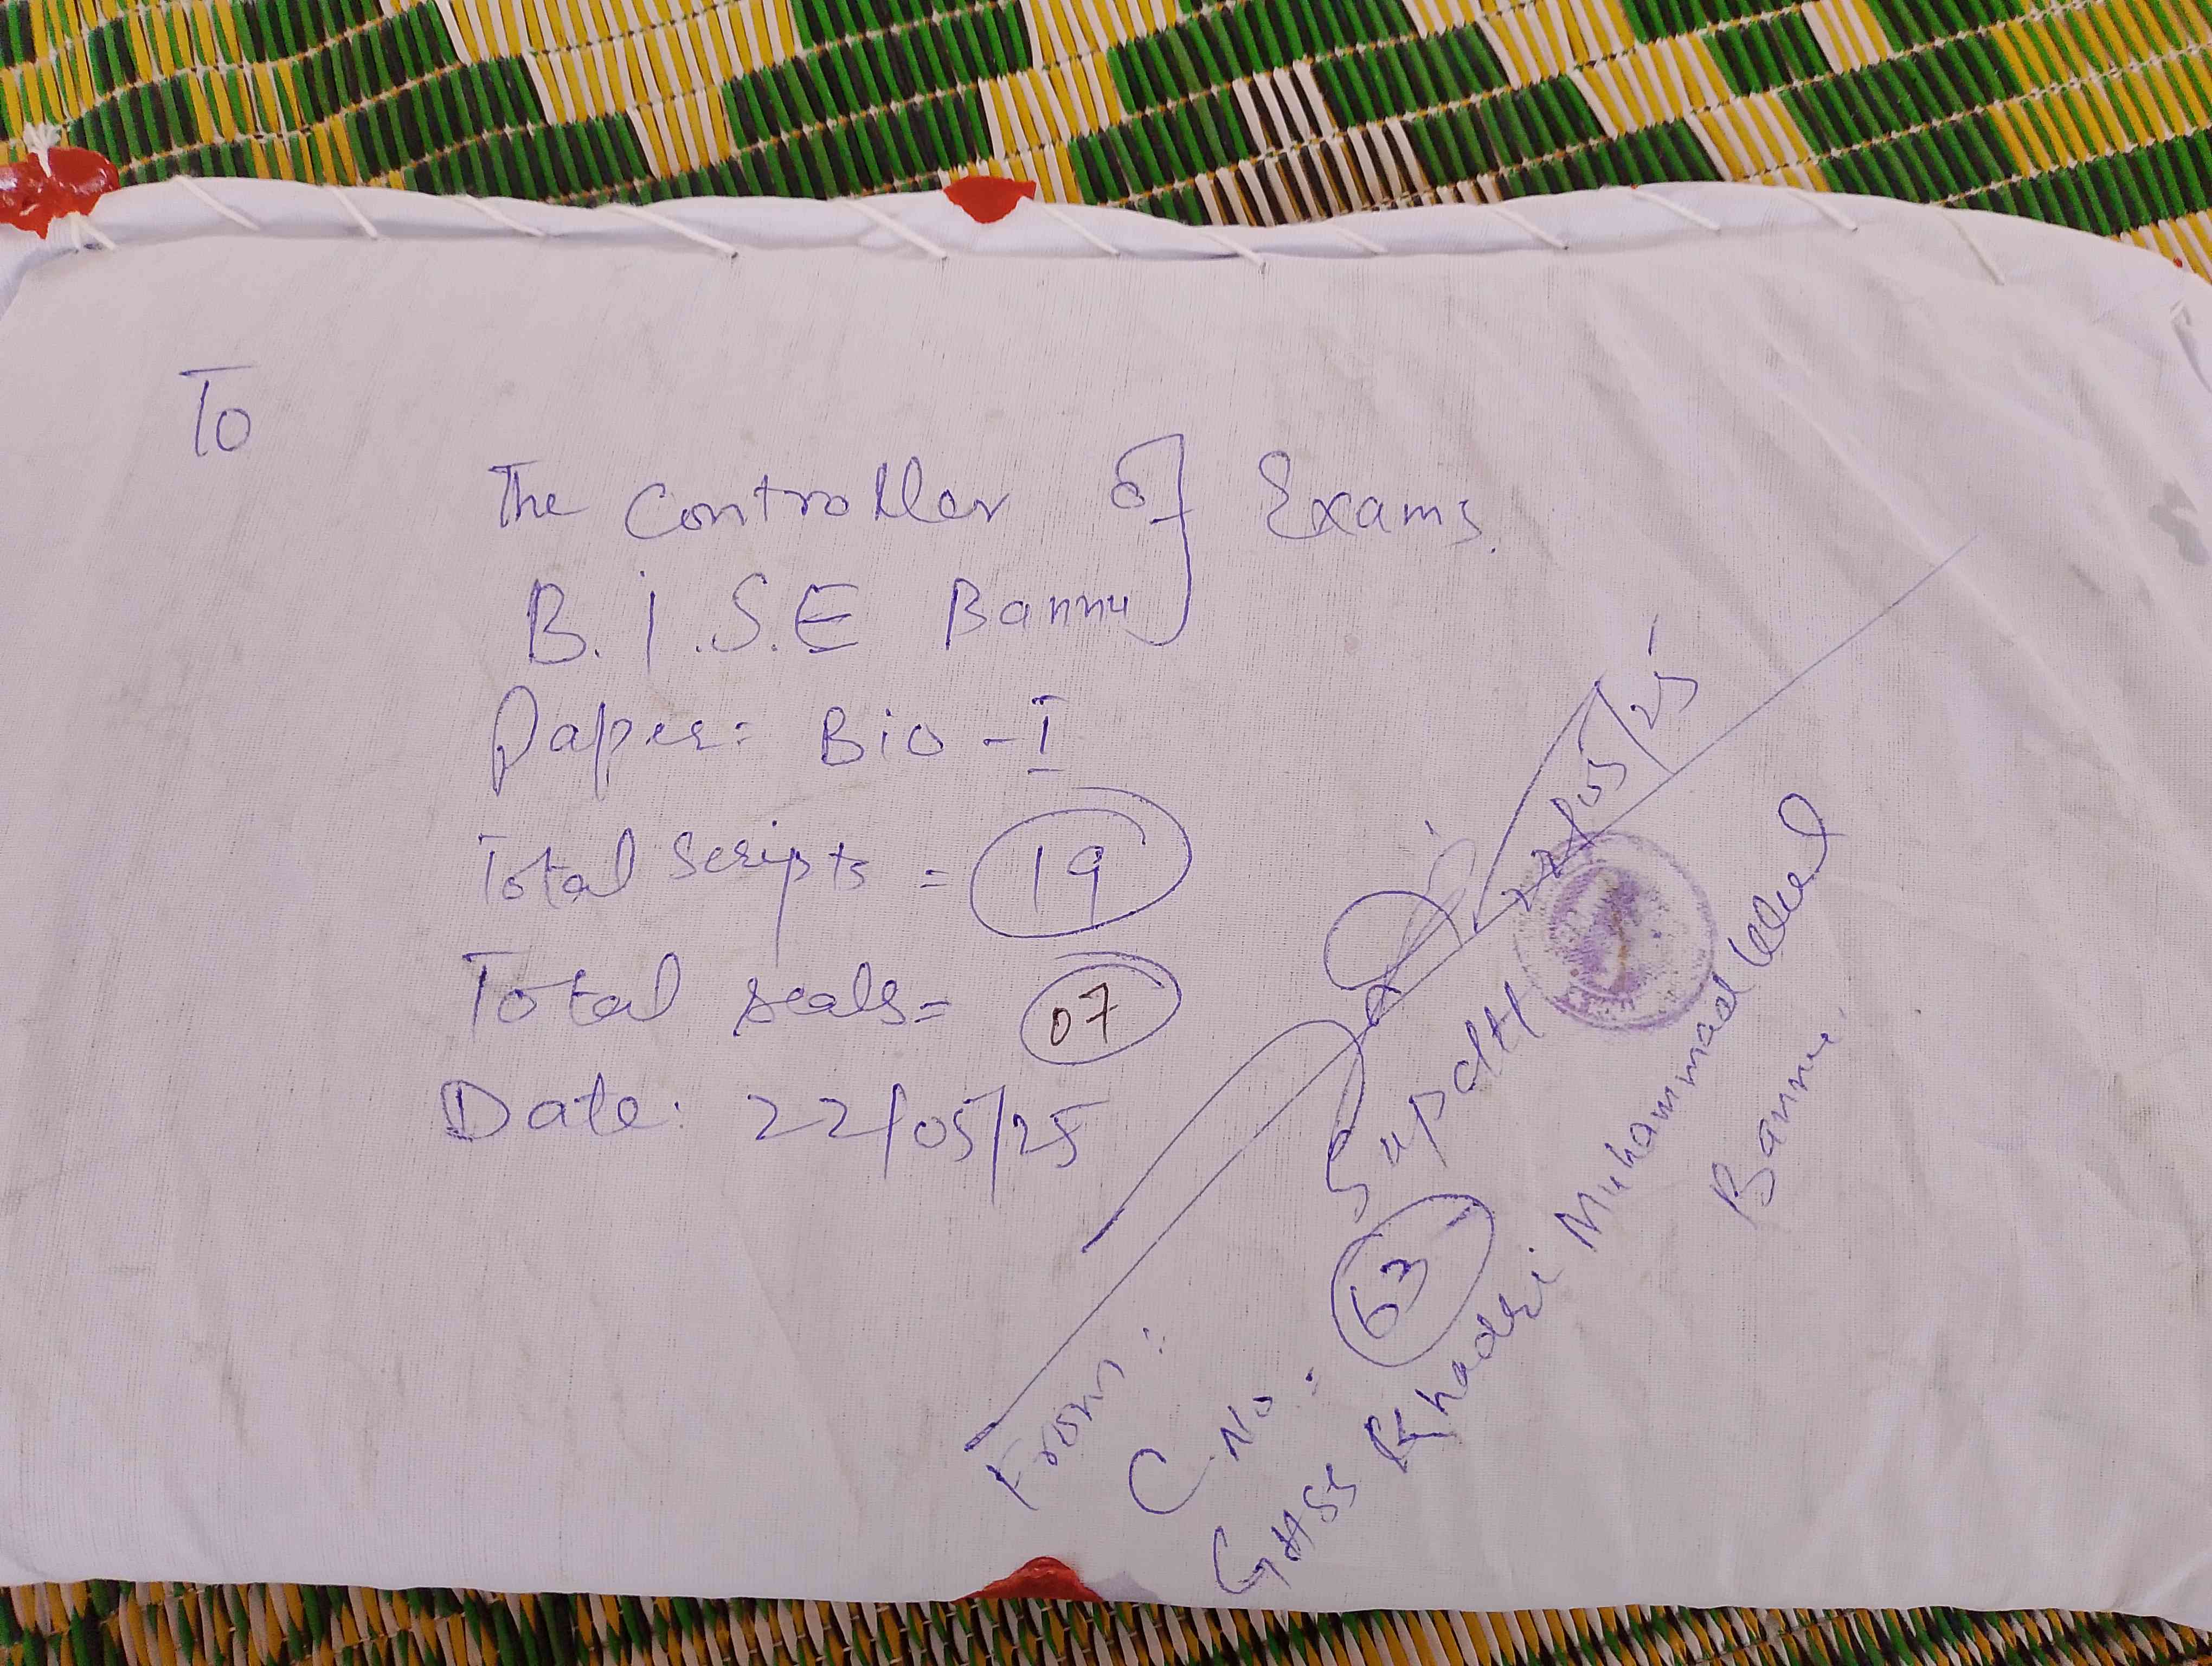 To
The Controller of Exams.
B.I.S.E Bannu
Paper: Bio-I
Total Scripts = 19
Total seals= 07
Date: 22/05/25
22/05/25
Supdtt
From:
C.No: 63
GHSS Khadri Muhammad
Bannu.